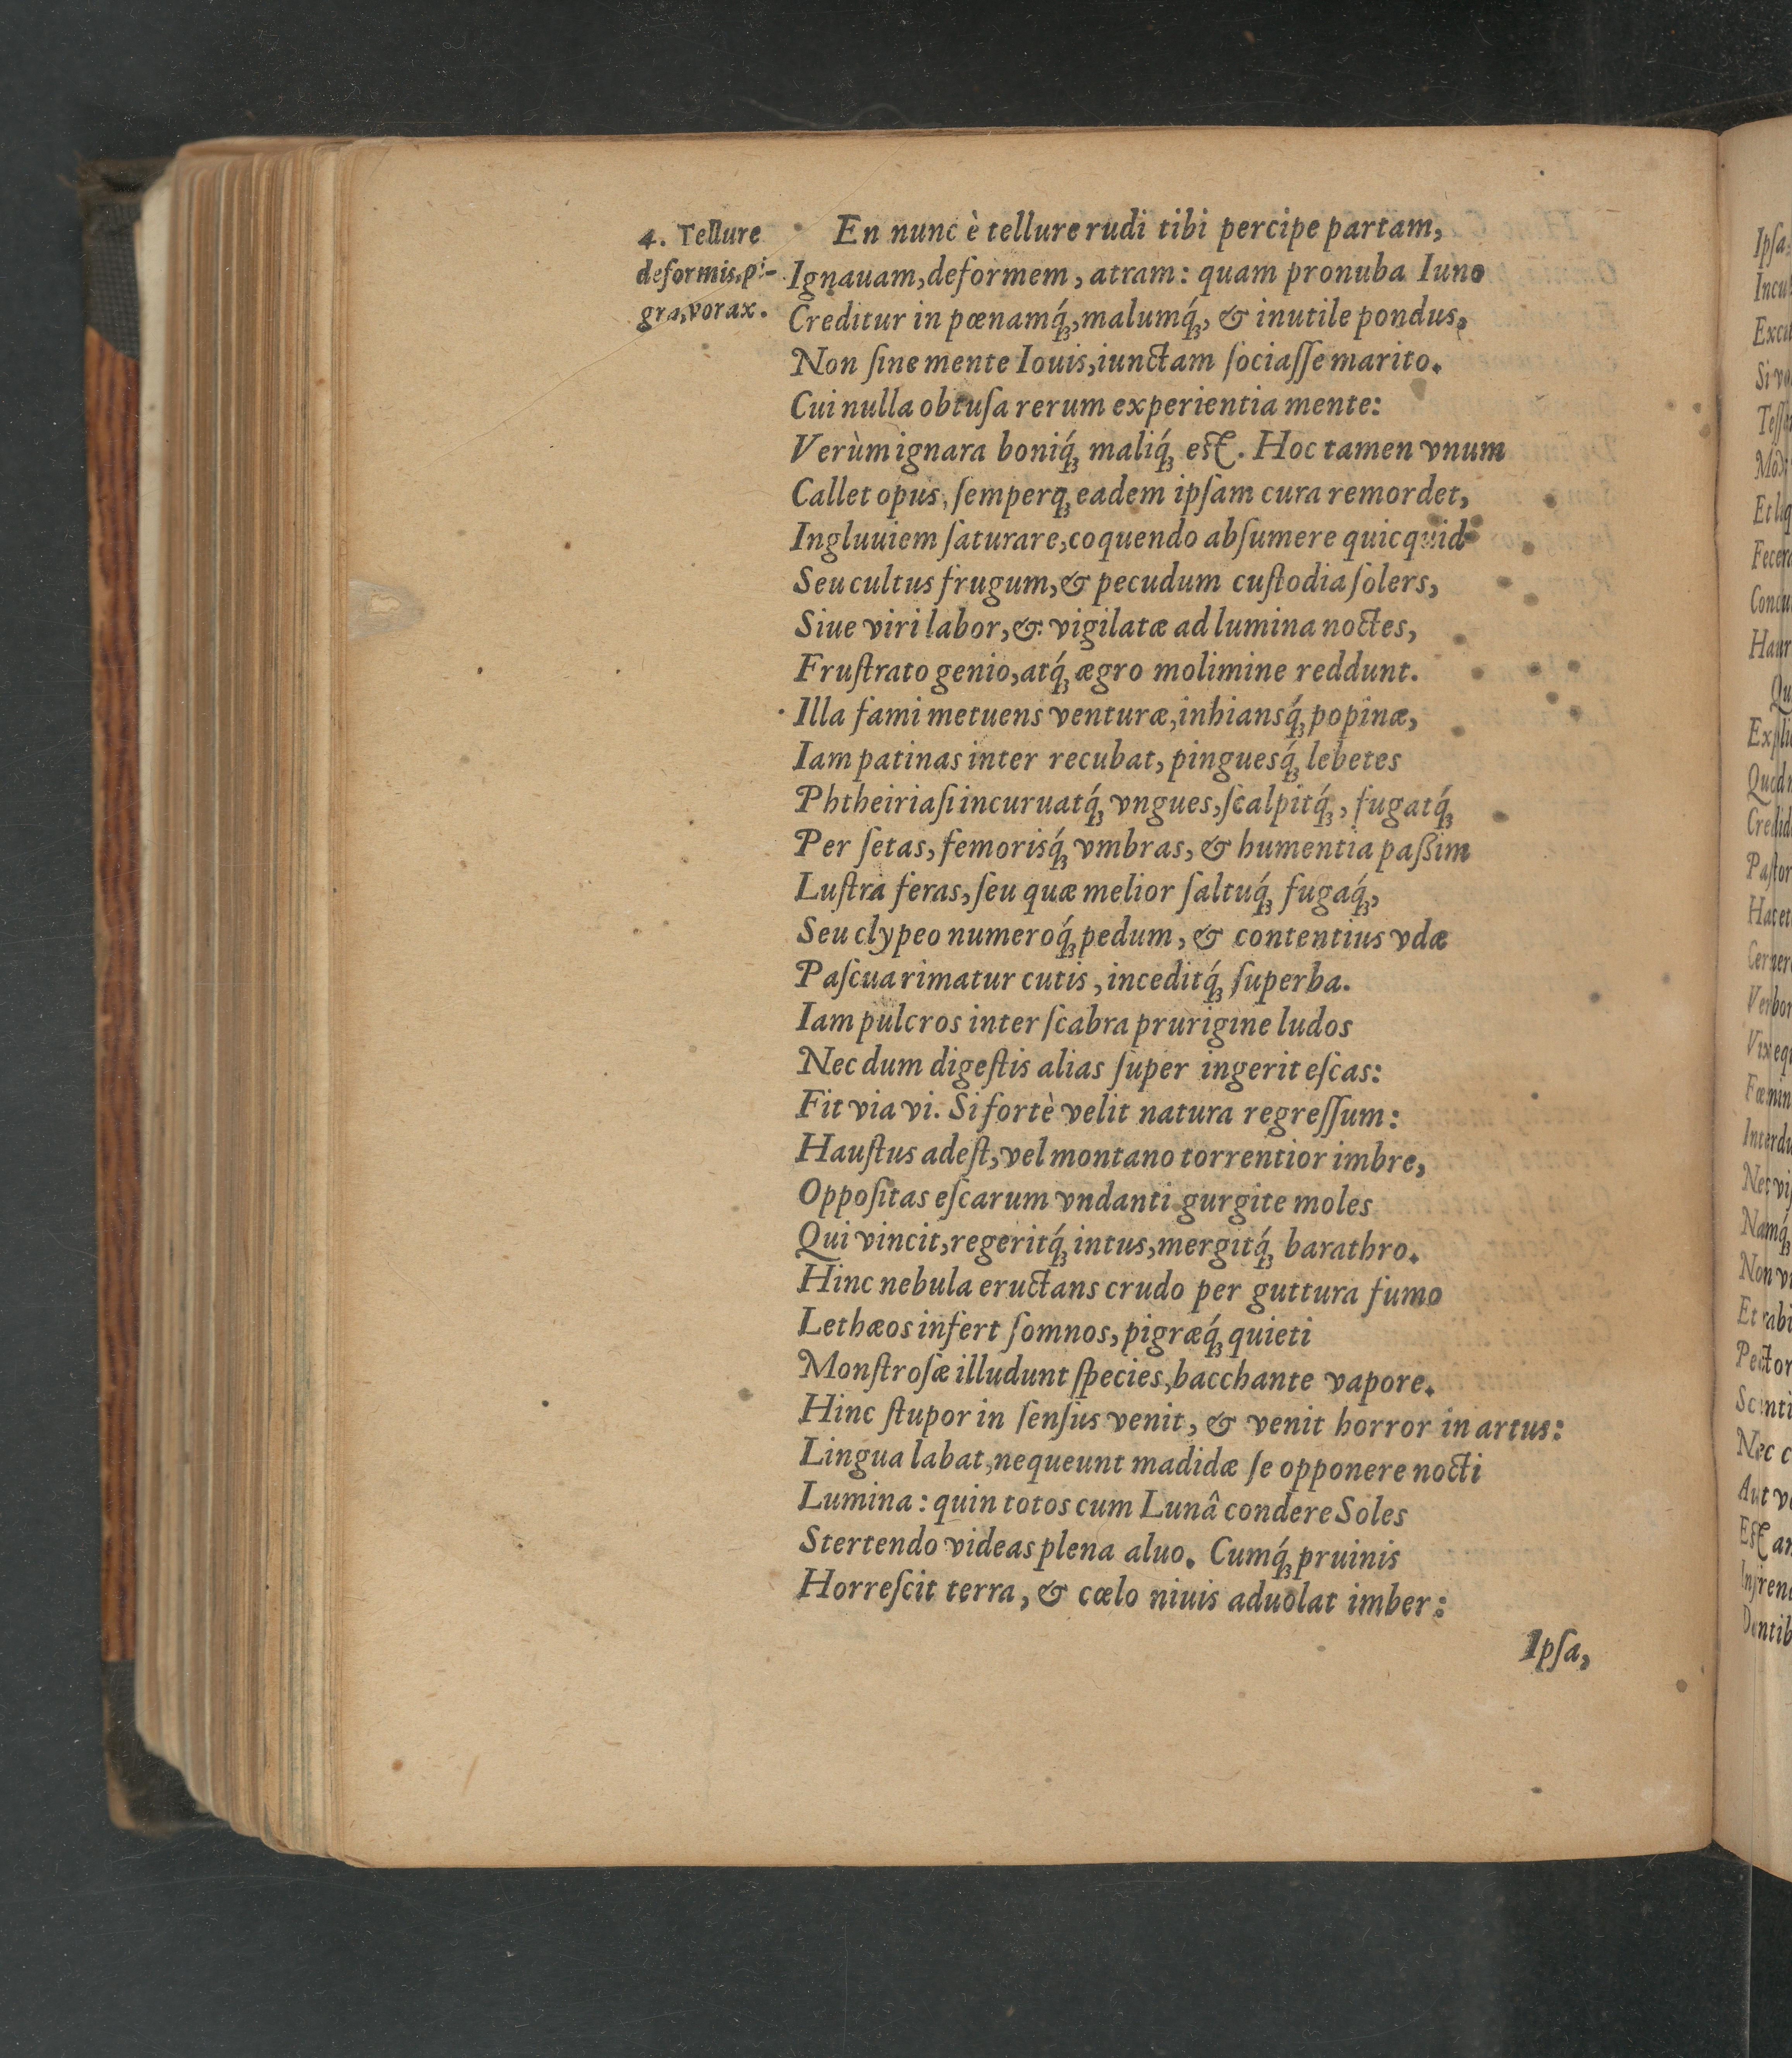 4. Tellure
deformis, pi-
gra, vorax.
En nunc è tellure rudi tibi percipe partam,
Ignauam, deformem, atram: quam pronuba Iuno
Creditur in pœnamq́ꝫ, malumq́ꝫ, & inutile pondus,
Non ſine mente Iouis, iunctam ſociaſſe marito.
Cui nulla obtuſa rerum experientia mente:
Verùm ignara boniq́ꝫ maliq́ꝫ est. Hoc tamen vnum
Callet opus, ſemperqꝫ eadem ipſam cura remordet,
Ingluuiem ſaturare, coquendo abſumere quicquid
Seu cultus frugum, & pecudum cuſtodia ſolers,
Siue viri labor, & vigilatæ ad lumina noctes,
Fruſtrato genio, atq́ꝫ ægro molimine reddunt.
Illa fami metuens venturæ, inhiansq́ꝫ popinæ,
Iam patinas inter recubat, pinguesq́ꝫ lebetes
Phtheiriaſi incuruatq́ꝫ vngues, ſcalpitq́ꝫ, fugatq́ꝫ
Per ſetas, femorisq́ꝫ vmbras, & humentia paßim
Luſtra feras, ſeu quæ melior ſaltuq́ꝫ fugaq́ꝫ,
Seu clypeo numeroq́ꝫ pedum, & contentius vdæ
Paſcua rimatur cutis, inceditq́ꝫ ſuperba.
Iam pulcros inter ſcabra prurigine ludos
Nec dum digeſtis alias ſuper ingerit eſcas:
Fit via vi. Si fortè velit natura regreſſum:
Hauſtus adeſt, vel montano torrentior imbre,
Oppoſitas eſcarum vndanti gurgite moles
Qui vincit, regeritq́ꝫ intus, mergitq́ꝫ barathro.
Hinc nebula eructans crudo per guttura fumo
Lethæos infert ſomnos, pigræq́ꝫ quieti
Monſtroſæ illudunt ſpecies, bacchante vapore.
Hinc ſtupor in ſenſus venit, & venit horror in artus:
Lingua labat, nequeunt madidæ ſe opponere nocti
Lumina: quin totos cum Lunâ condere Soles
Stertendo videas plena aluo. Cumq́ꝫ pruinis
Horreſcit terra, & cœlo niuis aduolat imber:
Ipſa,